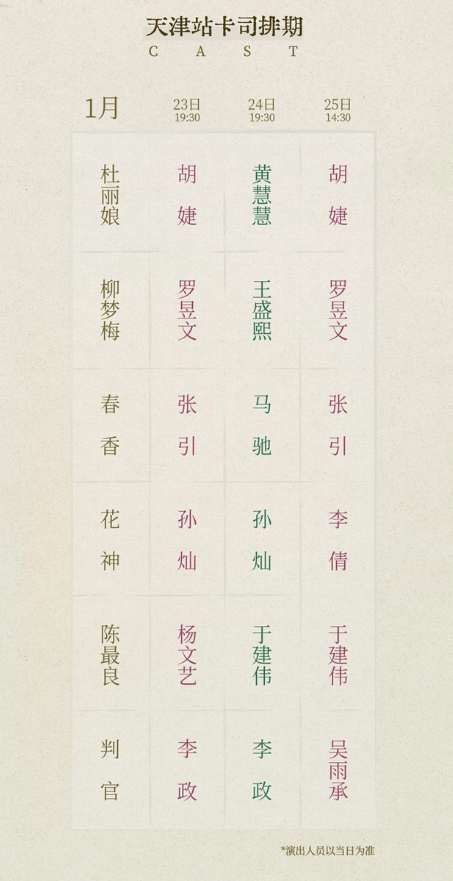 天津站卡司排期
CAST
1月 23日 24日 25日
19:30 19:30 14:30
杜丽娘 胡婕 黄慧慧 胡婕
柳梦梅 罗昱文 王盛熙 罗昱文
春香 张引 马驰 张引
花神 孙灿 孙灿 李倩
陈最良 杨文艺 于建伟 于建伟
判官 李政 李政 吴雨承
*演出人员以当日为准